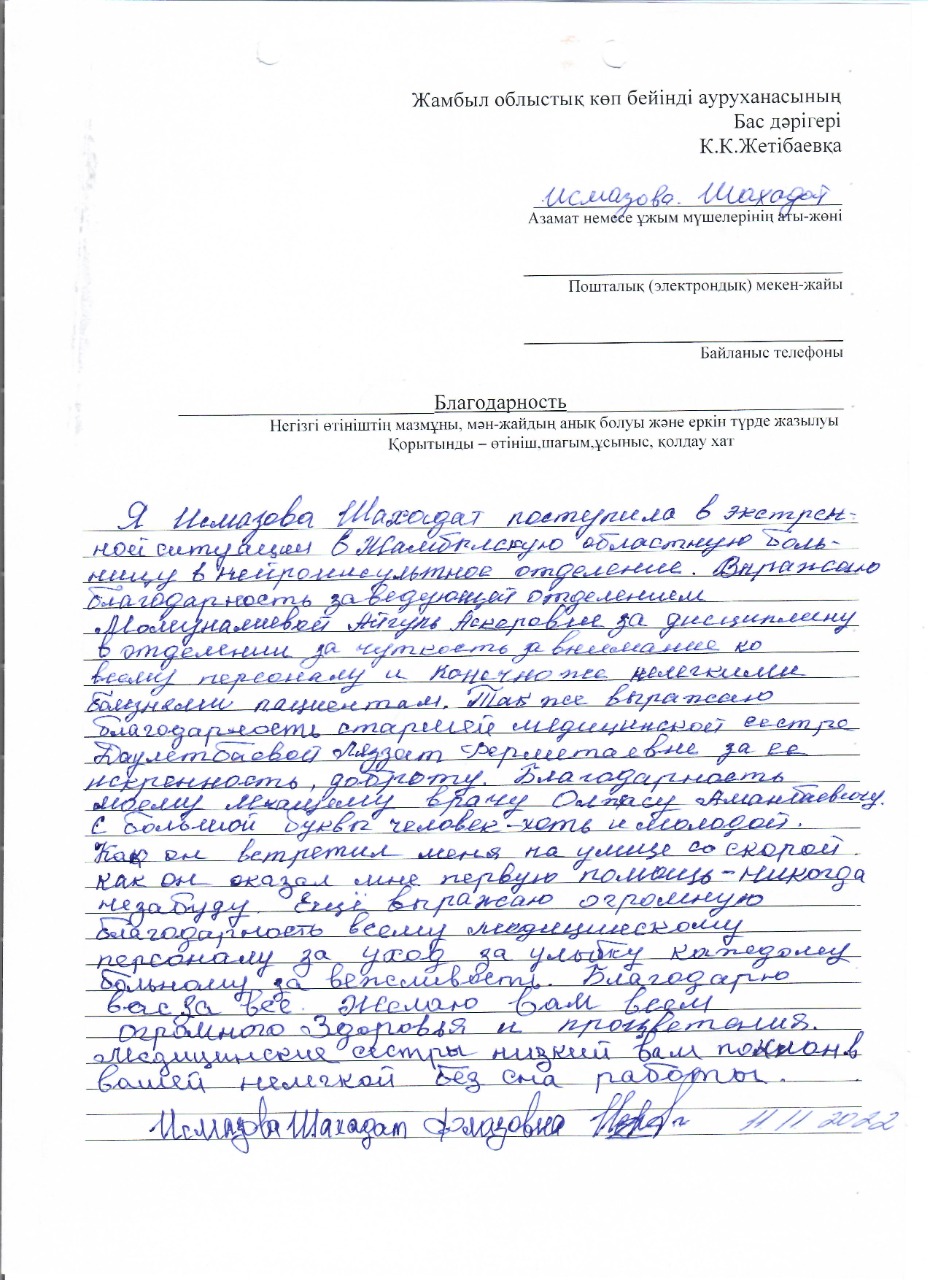 Жамбыл облыстық көп бейінді ауруханасының
Бас дәрігері
К.К.Жетібаевқа
Исмазова. Шахадат
Азамат немесе ұжым мүшелерінің аты-жөні
Пошталық (электрондық) мекен-жайы
Байланыс телефоны
Благодарность
Негізгі өтініштің мазмұны, мән-жайдың анық болуы және еркін түрде жазылуы
Қорытынды – өтініш,шағым,ұсыныс, қолдау хат
Я Исмазова Шахадат поступила в экстрен-
ной ситуации в Жамбылскую областную боль-
ницу в нейроинсультное отделение. Выражаю
благодарность заведующей отделением
Молгуналиевой Айгуль Аскеровне за дисциплину
в отделении за чуткость за внимание ко
всему персоналу и конечно же нелегкими
болезнями пациентам. Так же выражаю
благодарность старшей медицинской сестре
Даулетбаевой Ляззат за ее
искренность, доброту. Благодарность
моему лечащему врачу Олжасу Амантаевичу.
с большой буквы человек-хоть и молодой.
Как он встретил меня на улице со скорой.
как он оказал мне первую помощь-никогда
незабуду. Ещё выражаю огромную
благодарность всему медицинскому
персоналу за уход за улыбку каждому
больному за вежливость. Благодарю
вас за все. Желаю вам всем
огромного здоровья и процветания.
Медицинские сестры низкий вам поклон в
вашей нелегкой без сна работы.
Исмазова Шахадат 11 11 2022